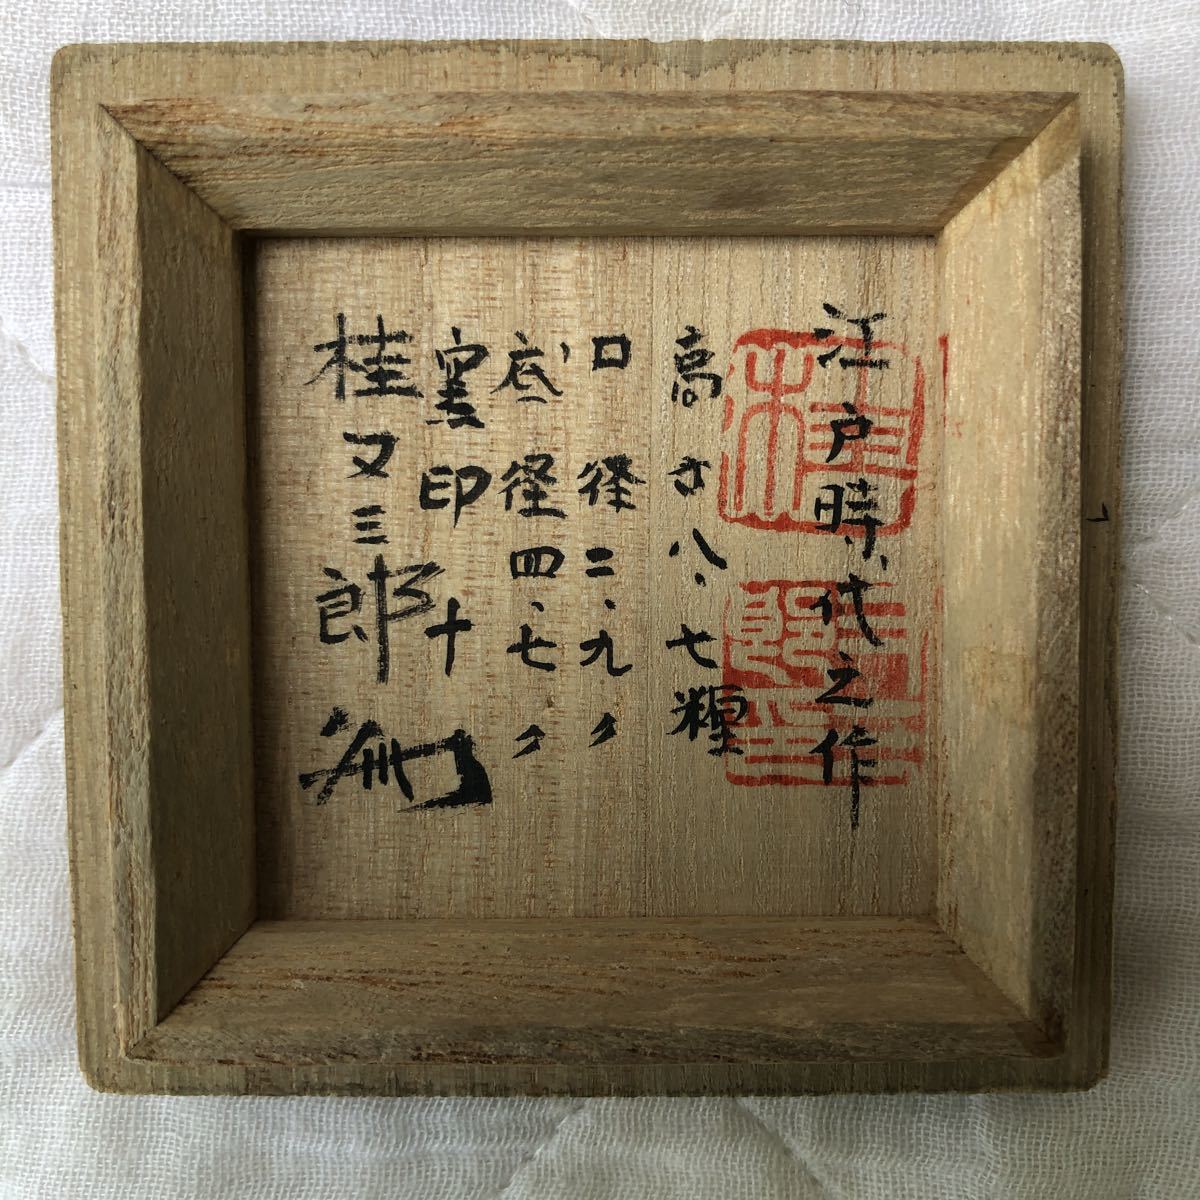 江戸時代之作
高さ八、七糎
口径二、九〃
底径四、七〃
窯印十
桂又三郎